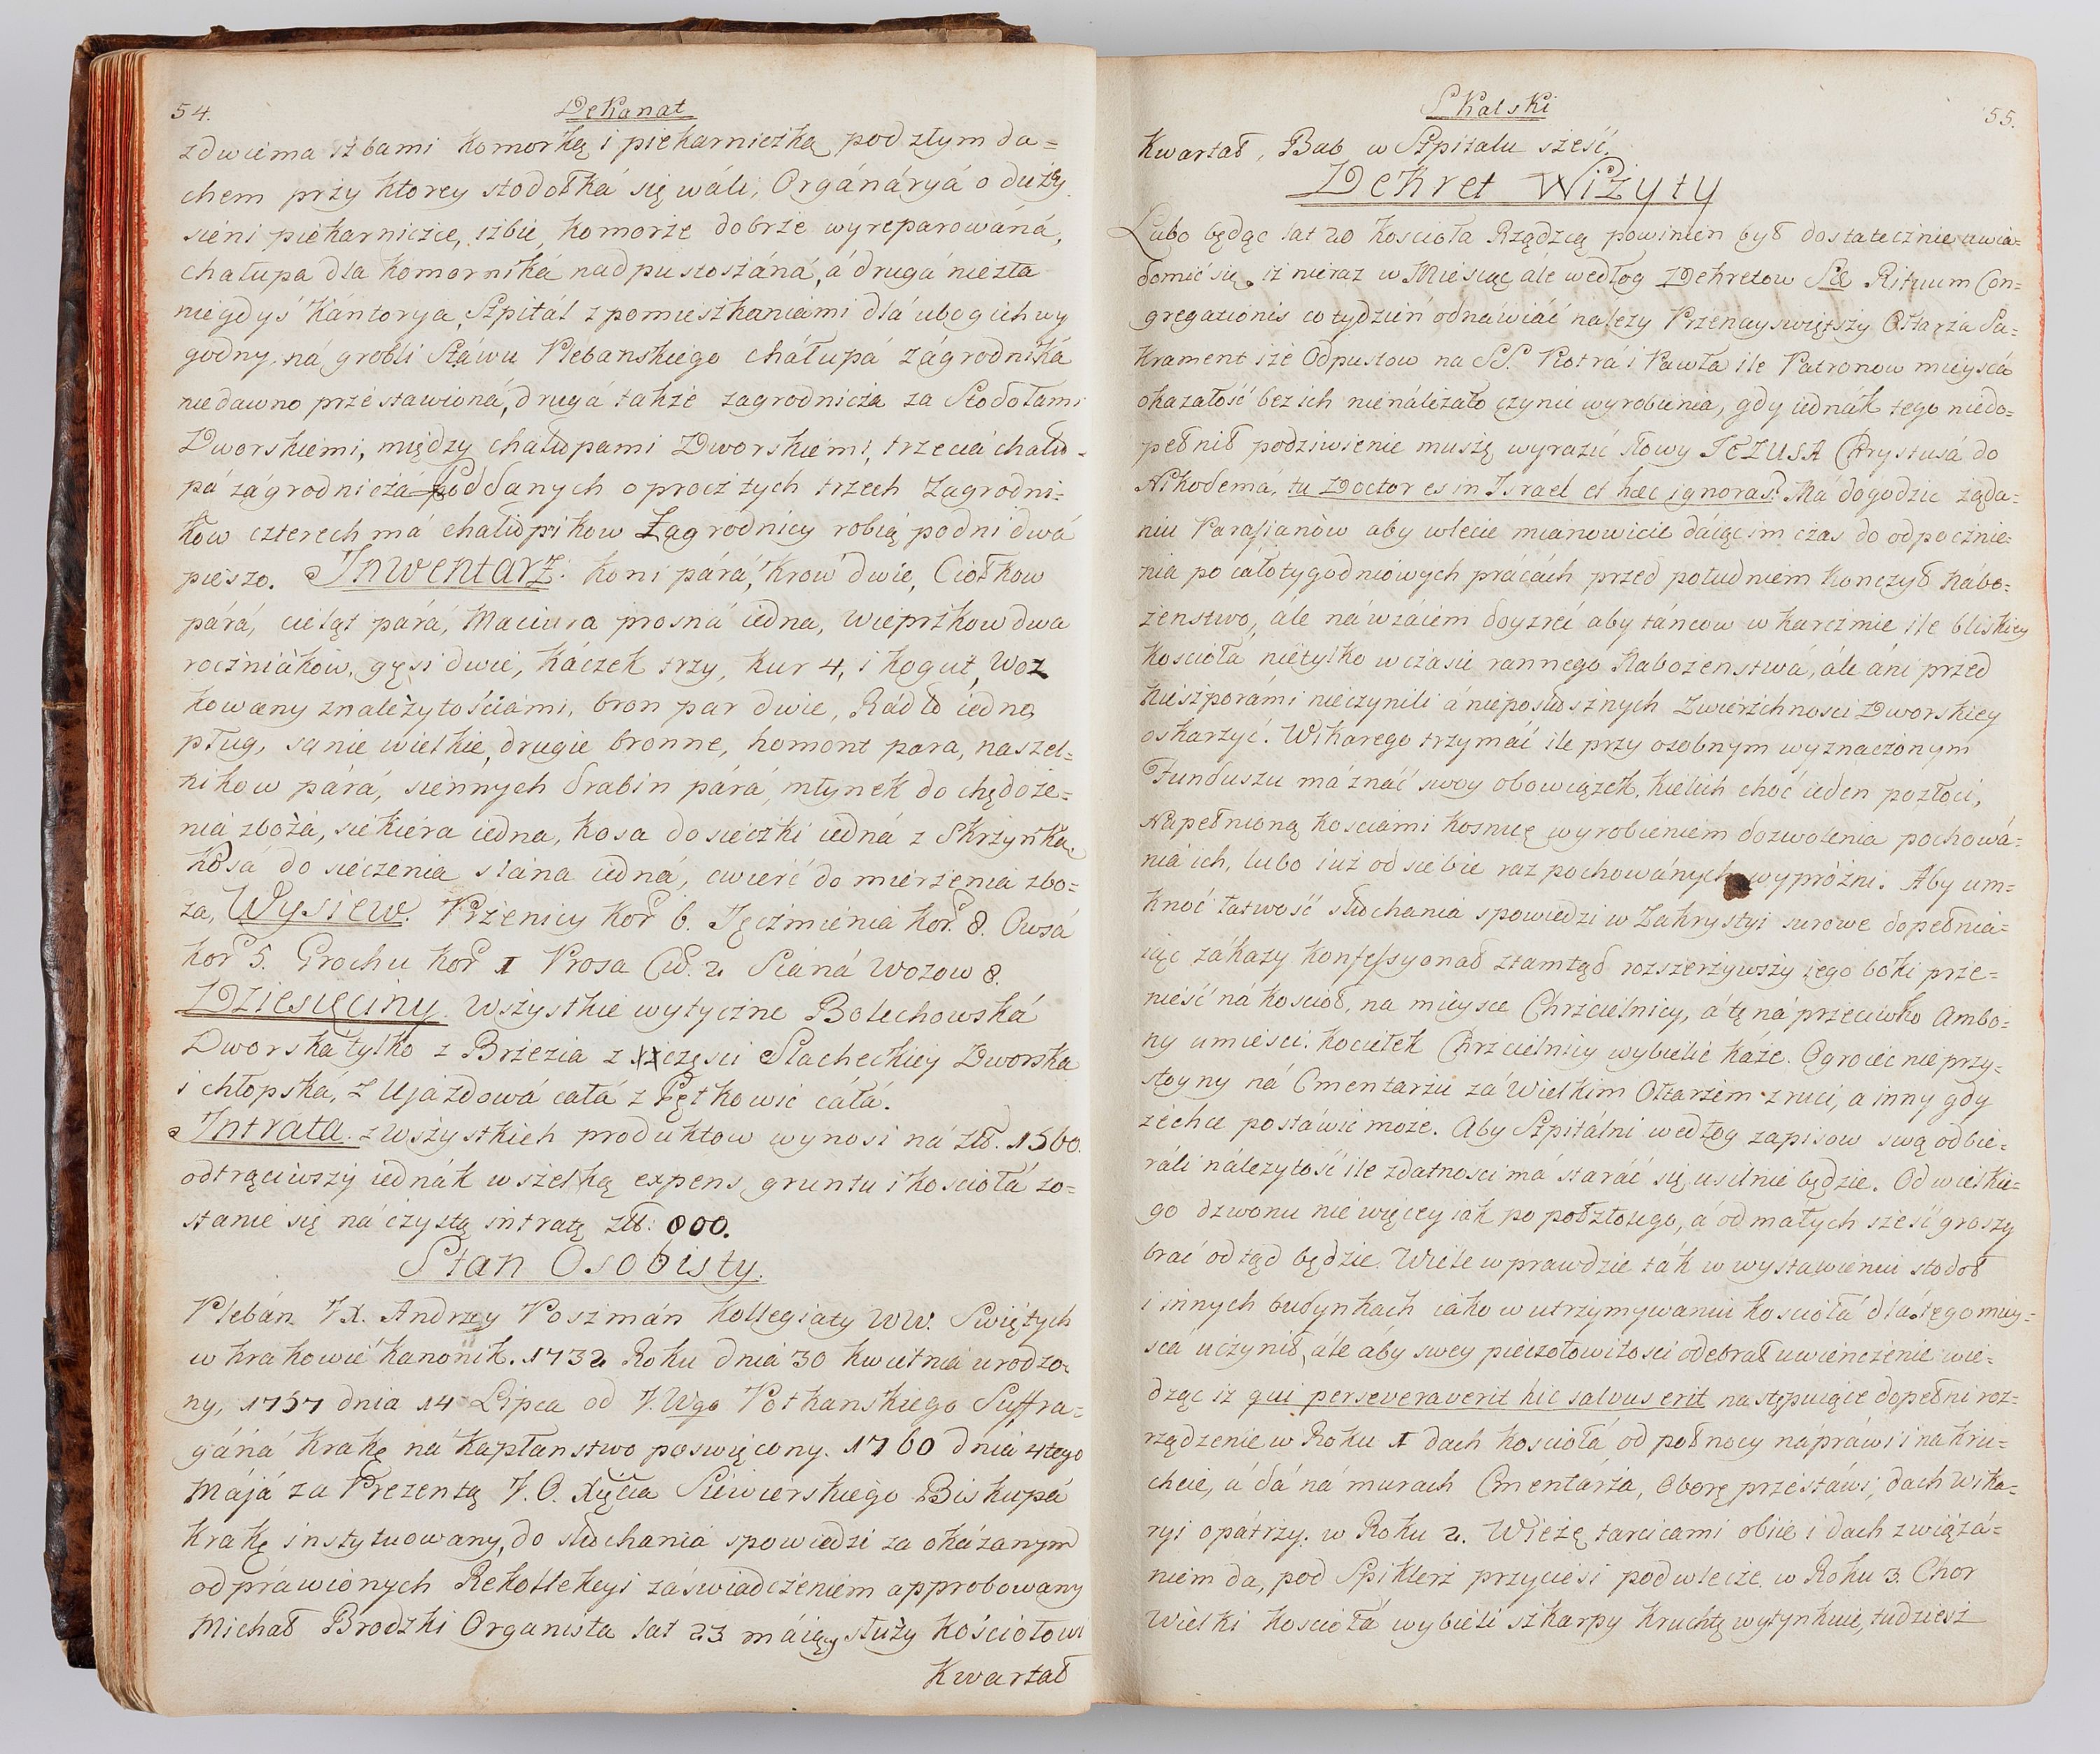 54.
Dekanat
zdwiema izbami komorką i piekarnieżką pod złym da=
chem przy ktorey stodołká się wáli, Orgánáryá o dużey
sieni piekarniczce, izbie, komorże dobrże wyreparowáná,
chałupa dla komorniká nadpustoszáná, á drugá niezła
niegdyś Kántorya, Szpitál z pomieszkaniámi dlá ubogich wy
godny, ná grobli Stáwu Plebanskiego chałupá zágrodniká
niedawno przestawioná, drugá także zagrodnicża za Stodołami
Dworskiemi, między chałupami Dworskiemi, trzeciá chału=
pá zágrodnicżá Poddanych oprocż tych trzech Zagrodni=
kow czterech má chałupnikow Zagrodnicy robią po dni dwá
pieszo. Inwentarz. Koni párá, Krow dwie, Ciołkow
párá, cieląt párá, Maciora prosná iedna, Wieprzkow dwa
rocżniákow, gęsi dwie, káczek trzy, kur 4, i kogut, Woz
kowany z należytościámi, bron par dwie, Rádło iedno
pług, sanie wielkie, drugie bronne, homont para, naszel=
nikow párá, siennych drabin párá, młynek do chędoże=
niá zbożá, siekiéra iedna, kosa do sieczki iedná z Skrżynką
kosá do sieczenia siána iedná, cwierć do mierżenia zbo=
ża, Wysiew. Pszenicy Kor. 6. Jęcżmienia Kor. 8. Owsá
kor. 5. Grochu kor. 1 Prosa Cw. 2 Sianá wozow 8.
Dziesięciny. Wszystkie wytyczne Bolechowská
Dworská tylko z Brzezia z części Slacheckiey Dworska
i chłopská, z Ujázdowá cáłá z Pętkowic cáłá.
Intrata. z wszystkich produktow wynosi ná zł. 1560.
odtrąciwszy iednák wszelką expens, gruntu i kosciołá zo=
stanie się ná cżystą intratę zł. 800.
Stan Osobisty.
Plebán JX. Andrzey Poszmán Kollegiaty WW. Swiętych
w krakowie kanonik. 1732 Roku dnia 30 kwietniá urodzo
ny, 1757 dnia 14 Lipca od J.Wgo Potkanskiego Suffra=
gáná krakę na kapłanstwo poswięcony. 1760 dnia 4tego
Májá za Prezentą J.O. Xięcia Siewierskiego Biskupá
krakę instytuowany, do słuchania spowiedzi za okázanym
odpráwionych Rekollekcyi záświadcżeniem approbowany
Michał Brodzki Organista lat 23 máiący służy kościołowi
Kwartał
Skalski
55.
Kwartał, Bab w Szpitalu sześć.
Dekret Wizyty
Lubo będąc lat 20 kościoła Rządzcą powinien był dostatecznie uwia=
domić się, iż nieraz w Miesiąc ále według Dekretow Sae Rituum Con=
gregationis co tydzień odnáwiáć należy Przenayswiętszy Ołtarża Sa=
krament iże Odpustow na SS. Piotrá i Pawła ile Patronow mieyscá
okazałość bez ich nienáleżało czynić wyrobienia, gdy iednák tego niedo=
pełnił podziwienie muszę wyrazić słowy JEZUSA Chrystusá do
Nikodemá, tu Doctor es in Israel et hæc ignoras? Má dogodzic żąda=
niu Parafianòw aby w lecie mianowicie dáiąc im cżas do odpocznie=
nia po całotygodniowych prácách przed południem kończył nábo=
żenstwo, ale náwzáiem doyzreć aby táncow w karczmie ile bliskiey
kościoła nietylko w cżasie rannego Nabożenstwá, ále áni przed
Nieszporámi nieczynili á nieposłusznych Zwierzchnosci Dworskiey
oskarzyć. Wikarego trzymáć ile przy osobnym wyznaczonym
Funduszu má znáć swoy obowiązek, kielich choć ieden pozłoci,
Napełnioną kościami kosnicę wyrobieniem dozwolenia pochowá=
niá ich, lubo iuż od siebie raz pochowánych wypróżni. Aby um=
knoć łatwość słuchania spowiedzi w Zakrystyi surowe dopełnia=
iąc zákazy konfessyonał ztamtąd rozszerżywszy iego boki prże=
nieść ná kościoł, na mieysce Chrzcielnicy, á tę ná przeciwko Ambo=
ny umieści. kociełek Chrzcielnicy wybielić każe. Ogroiec nieprzy=
stoyny ná Cmentarżu zá Wielkim Ołtarżem zruci, a inny gdy
zechce postáwić może. Aby Szpitálni według zapisow swą odbie=
ráli należytość ile zdatnosci má starać się usilnie będzie. Od wielkie=
go dzwonu nie więcey iák po połzłotego, á od małych sześć groszy
brać odtąd będzie. Wiele wprawdzie ták w wystawieniu stodoł
i innych budynkach iako w utrzymywaniu kościołá dlá tego miey=
scá uczynił, ále áby swey pieczołowitości odebrał uwieńczenie wie=
dząc iż qui perseveraverit hic salvus erit następuiące dopełni roz=
rządzenie w Roku 1 dach kościołá od połnocy nápráwi i na kru=
chcie, á dá ná murach Cmentárża, Oborę przestáwi, dach Wika=
ryi opátrży. w Roku 2. Wieżę tarcicami obiie i dach zwiążá=
niem da, pod Spiklerż przyciesi podwlecże. w Roku 3. Chor
Wielki kościołá wybieli szkarpy kruchtę wytynkuie, tudziesz